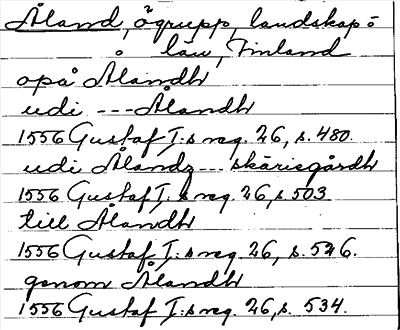 Åland, ögrupp, landskap o
län, Finland
opå Ålandh
udi --- Ålandh
1556 Gustaf I:s reg. 26, s. 480.
udi Ålandz --- skärisgårdh
1556 Gustaf I:s reg. 26, s 503
till Ålandh
1556 Gustaf I:s reg. 26, s. 526.
genom Ålandh
1556 Gustaf I:s reg. 26, s. 534.